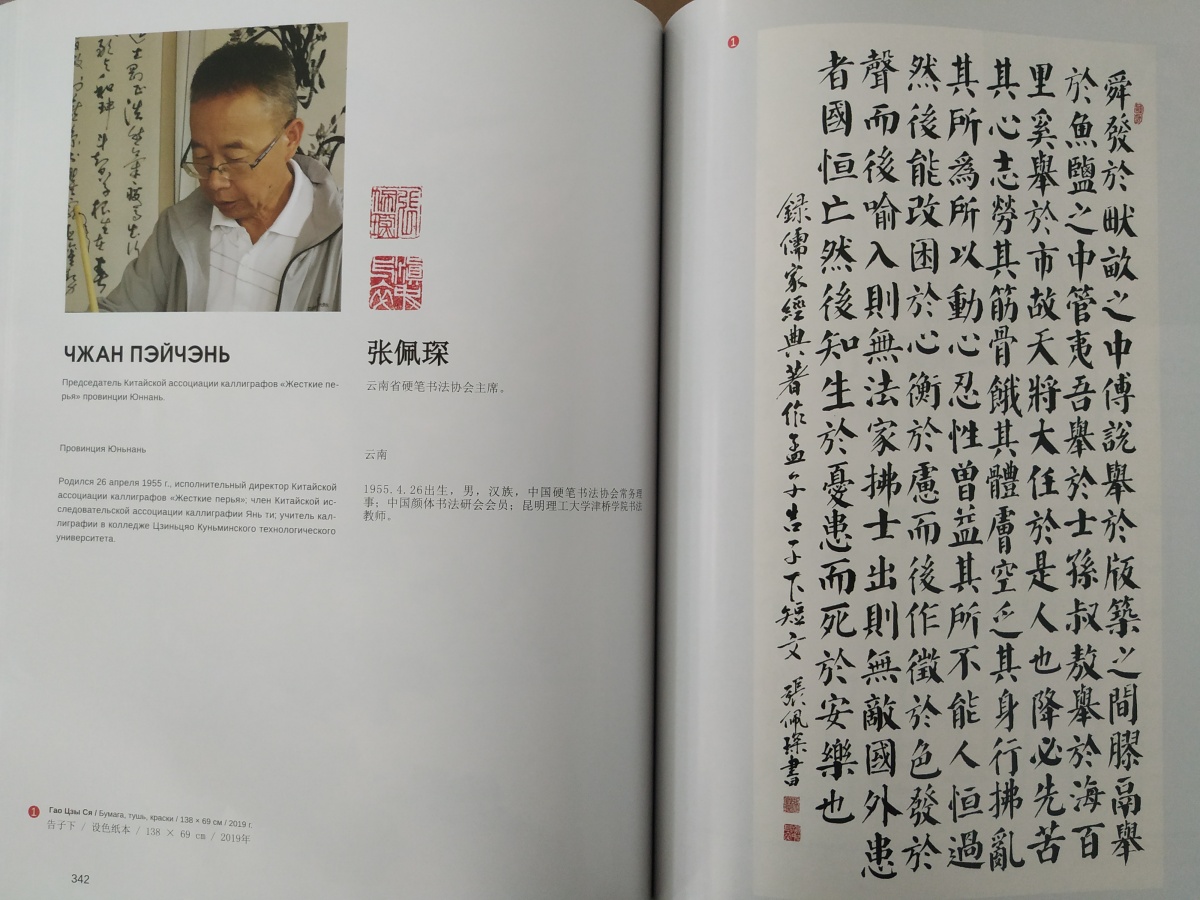 ЧЖАН ПЭЙЧЭНЬ
Председатель Китайской ассоциации каллиграфов «Жесткие пе-
рья» провинции Юннань.
Провинция Юньнань
Родился 26 апреля 1955 г., исполнительный директор Китайской
ассоциации каллиграфов «Жесткие перья»; член Китайской ис-
следовательской ассоциации каллиграфии Янь ти; учитель кал-
лиграфии в колледже Цзиньцяо Куньминского технологического
университета.
张佩琛
云南省硬笔书法协会主席。
云南
1955.4.26出生，男，汉族，中国硬笔书法协会常务理
事；中国颜体书法研会会员；昆明理工大学津桥学院书法
教师。
1 Гао Цзы Ся / Бумага, тушь, краски / 138 × 69 см / 2019 г.
告子下 / 设色纸本 / 138 × 69 cm / 2019年
342
1
舜發於畎畝之中傅説舉於版築之間膠鬲舉
於魚鹽之中管夷吾舉於士孫叔敖舉於海百
里奚舉於市故天將大任於是人也降必先苦
其心志勞其筋骨餓其體膚空乏其身行拂亂
其所為所以動心忍性曽益其所不能人恒過
然後能改困於心衡於慮而後作徵於色發於
聲而後喻入則無法家拂士出則無敵國外患
者國恒亡然後知生於憂患而死於安樂也
録儒家經典著作孟子告子下短文 張佩琛書